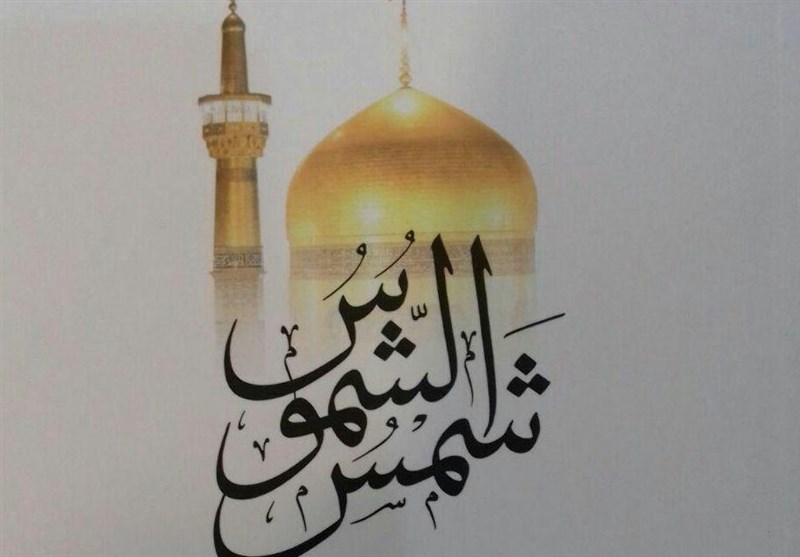 شَمسُ الشّمُوسُ